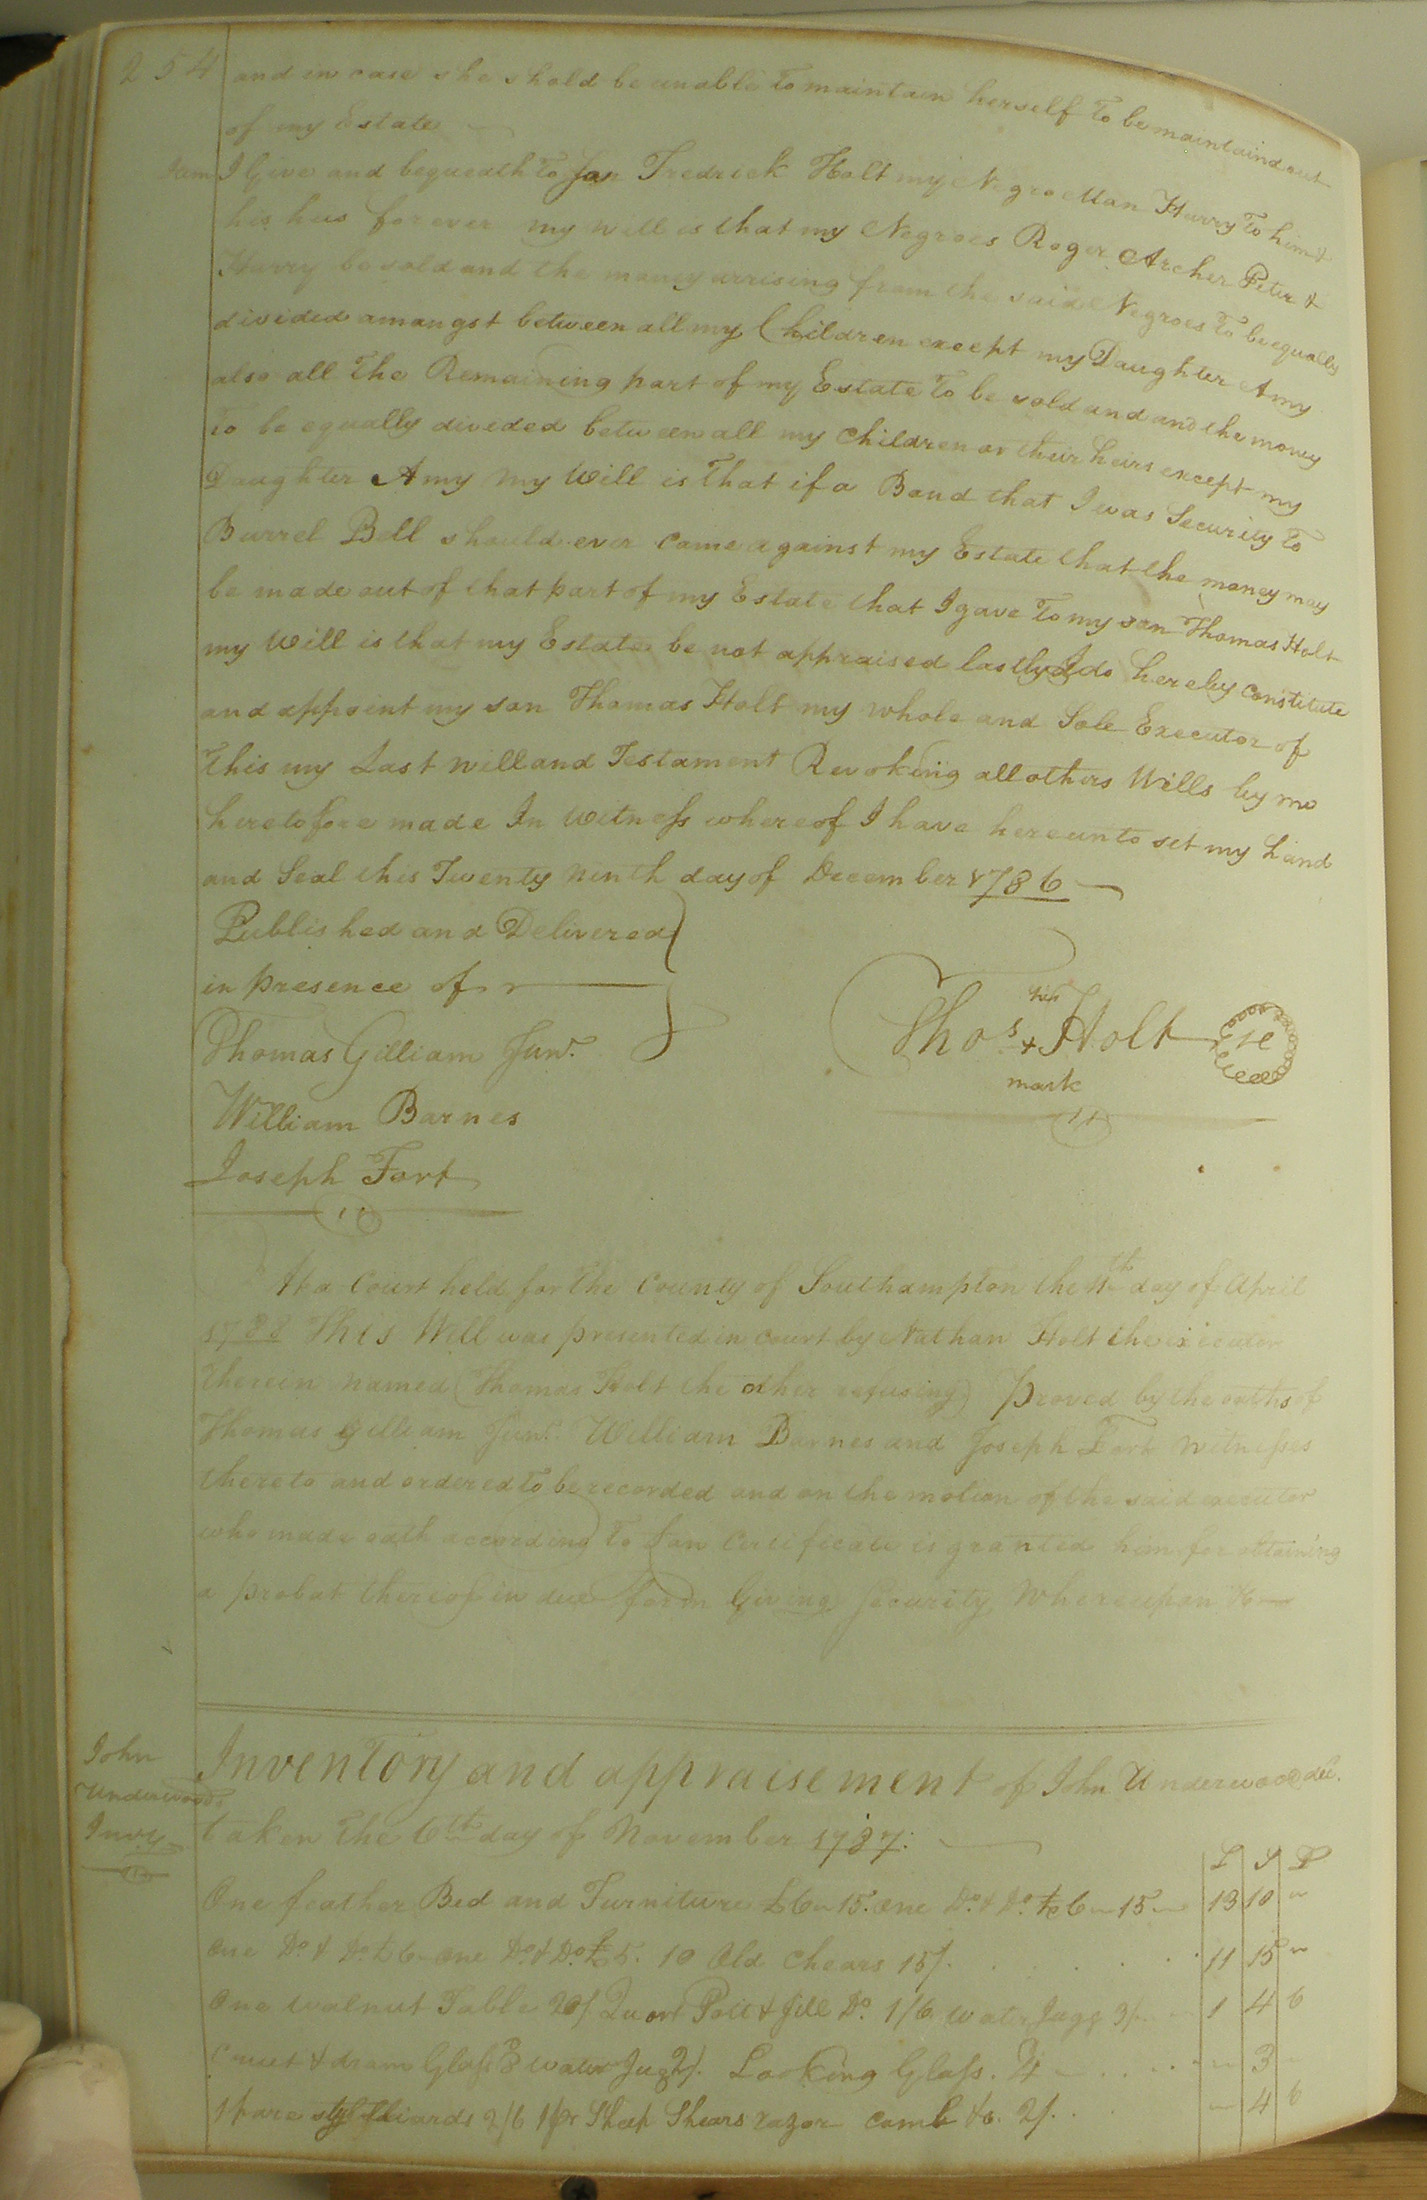 254
and in case she shold be unable to maintain herself to be maintaind out
of my Estate
Item I Give and bequeath to Fredrick Holt my Negroe Man Harry to him &
his heis forever my will is that my Negroes Roger Archer Peter &
Harry be sold and the money arrising from the said Negroes to be equally
divided amangst between all my Children except my Daughter Amy
also all the Remaining part of my Estate to be sold and and the money
to be equally divided between all my children or their heirs except my
Daughter Amy my Will is that if a Band that I was Security to
Burrel Bell should ever came against my Estate that the money may
be made out of that part of my Estate that I gave to my son Thomas Holt
my Will is that my Estate be not appraised lastly I do hereby constitute
and appoint my son Thomas Holt my whole and Sole Executor of
this my Last will and Testament Revoking all others Wills by me
heretofore made In Witness whereof I have hereunto set my hand
and Seal this Twenty ninth day of December 1786
Published and Delivered
in presence of
Thomas Gilliam Junr.
William Barnes
Joseph Fort
his
Thos + Holt
mark
At a Court held for the County of Southampton the day of April
1788 This Will was presented in court by Nathan Holt the executor
therein named (Thomas Holt the other refusing) proved by the oaths of
Thomas Gilliam Junr. William Barnes and Joseph Fort witnesses
thereto and ordered to be recorded and on the motion of the said executor
who made oath according to Law Certificate is granted him for obtaining
a probat thereof in due form Giving Security Whereupon &c
John
Underwoods
Invy
Inventory and appraisement of John Underwood dec.
taken the 6th day of November 1787.
L S D
One feather Bed and Furniture £6 15. one Do. & Do. £6 15 13 10
One Do. & Do. £6 one Do. & Do. £5. 10 Old Chears 15/. 11 15
One walnut Table 20/ Quort Pott & Jill Do. 1/6 water Jugg 3/ 1 4 6
Cruet & dram Glass & water Jug 2/. Looking Glass. 3
1 pare 2/6 1 pr Sheep Shears razor comb &c. 2/. 4 6